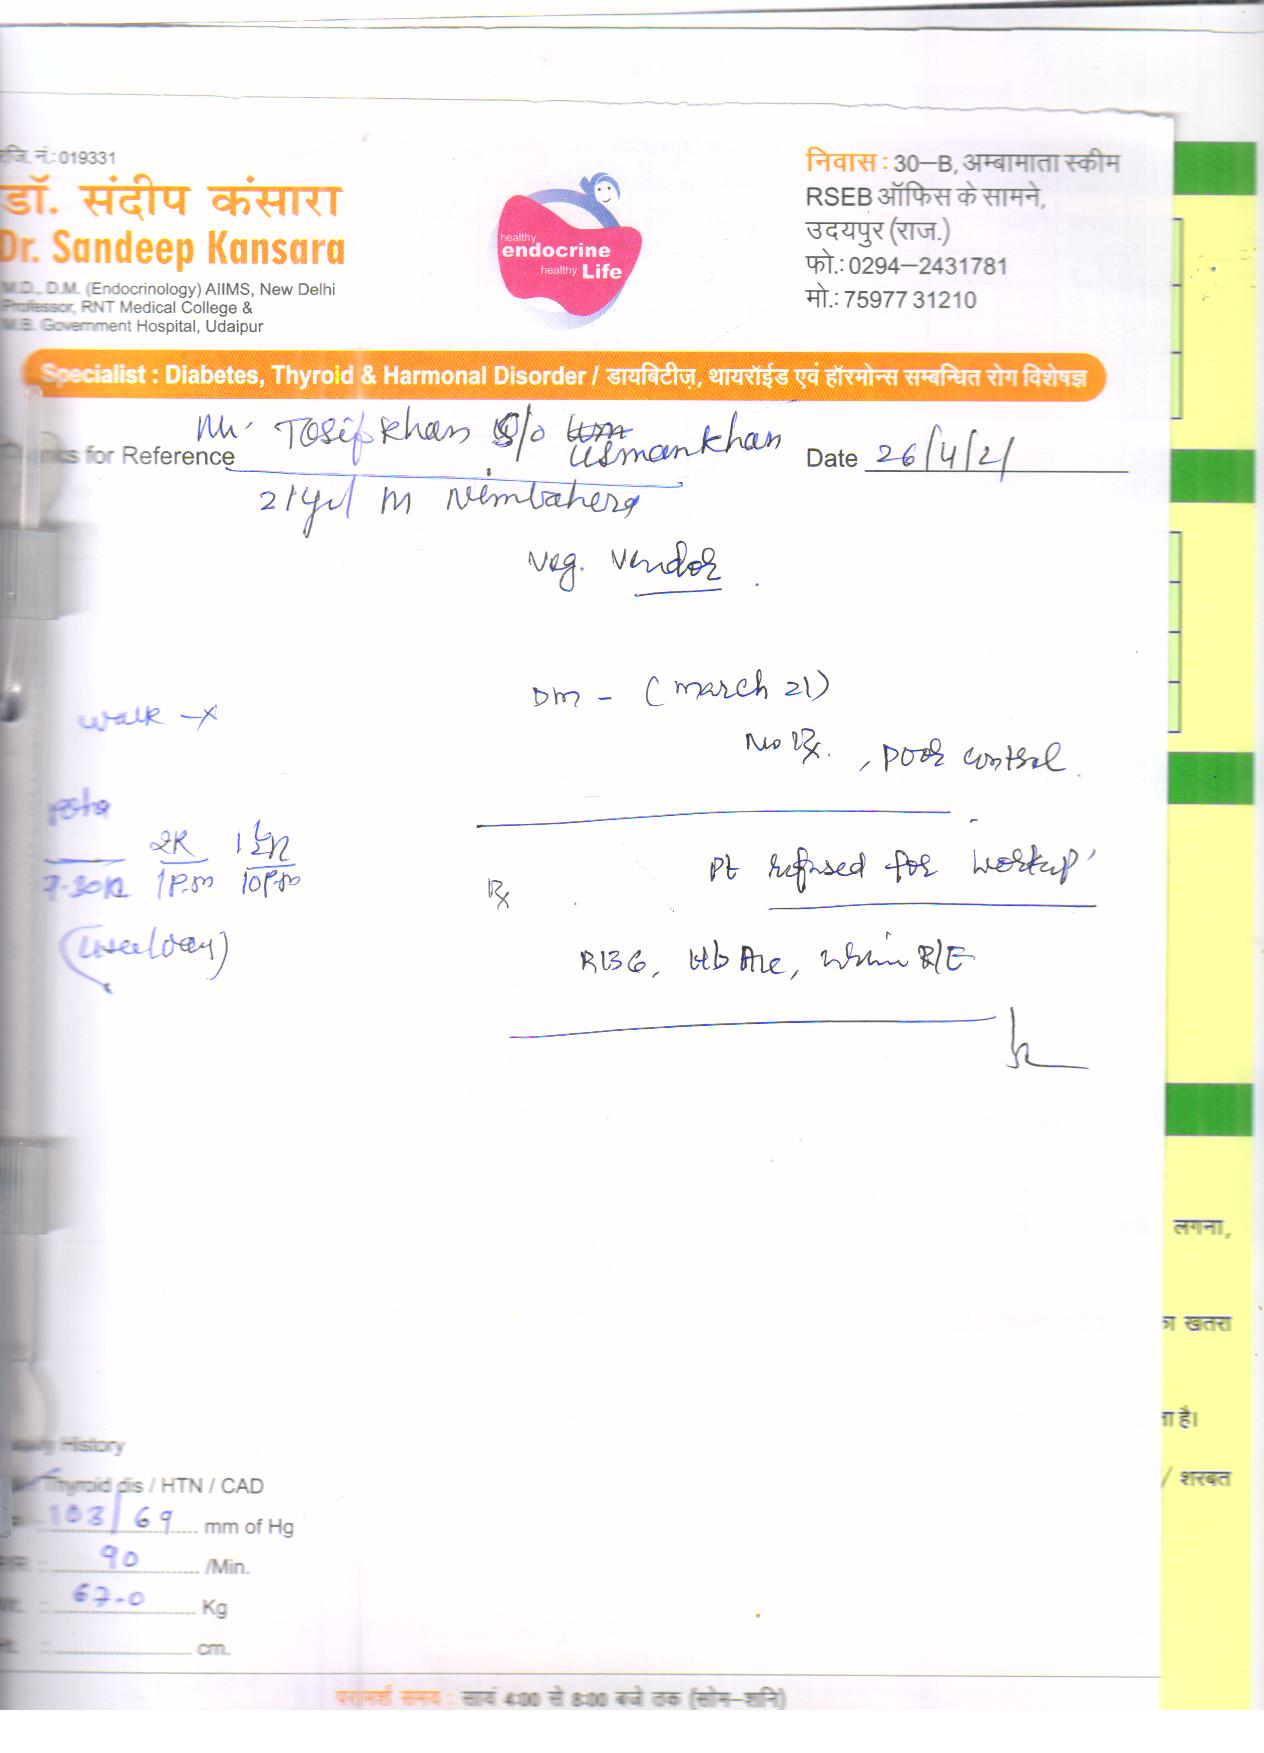 रजि. नं.: 019331
डॉ. संदीप कंसारा
Dr. Sandeep Kansara
M.D., D.M. (Endocrinology) AIIMS, New Delhi
Professor, RNT Medical College &
M.B. Government Hospital, Udaipur
healthy
endocrine
healthy Life
निवास : 30–B, अम्बामाता स्कीम
RSEB ऑफिस के सामने,
उदयपुर (राज.)
फो.: 0294–2431781
मो.: 75977 31210
Specialist : Diabetes, Thyroid & Harmonal Disorder / डायबिटीज़, थायरॉईड एवं हॉरमोन्स सम्बन्धित रोग विशेषज्ञ
Mr. Tosif Khan S/o Usman khan
Thanks for Reference Date 26/4/21
21yr/ M Nimbahera
Veg. Vendor
DM - (March 21)
Walk -x
No Rx. , poor control.
poha
2R 1½R
7-30 1P.m 10P.m
Pt refused for workup'
Rx
RBG, HbA1c, Urine R/E
Family History
Thyroid dis / HTN / CAD
103/69 mm of Hg
90 /Min.
67.0 Kg
cm.
परामर्श समय : सायं 4:00 से 8:00 बजे तक (सोम–शनि)
लगना,
का खतरा
ता है।
/ शरबत